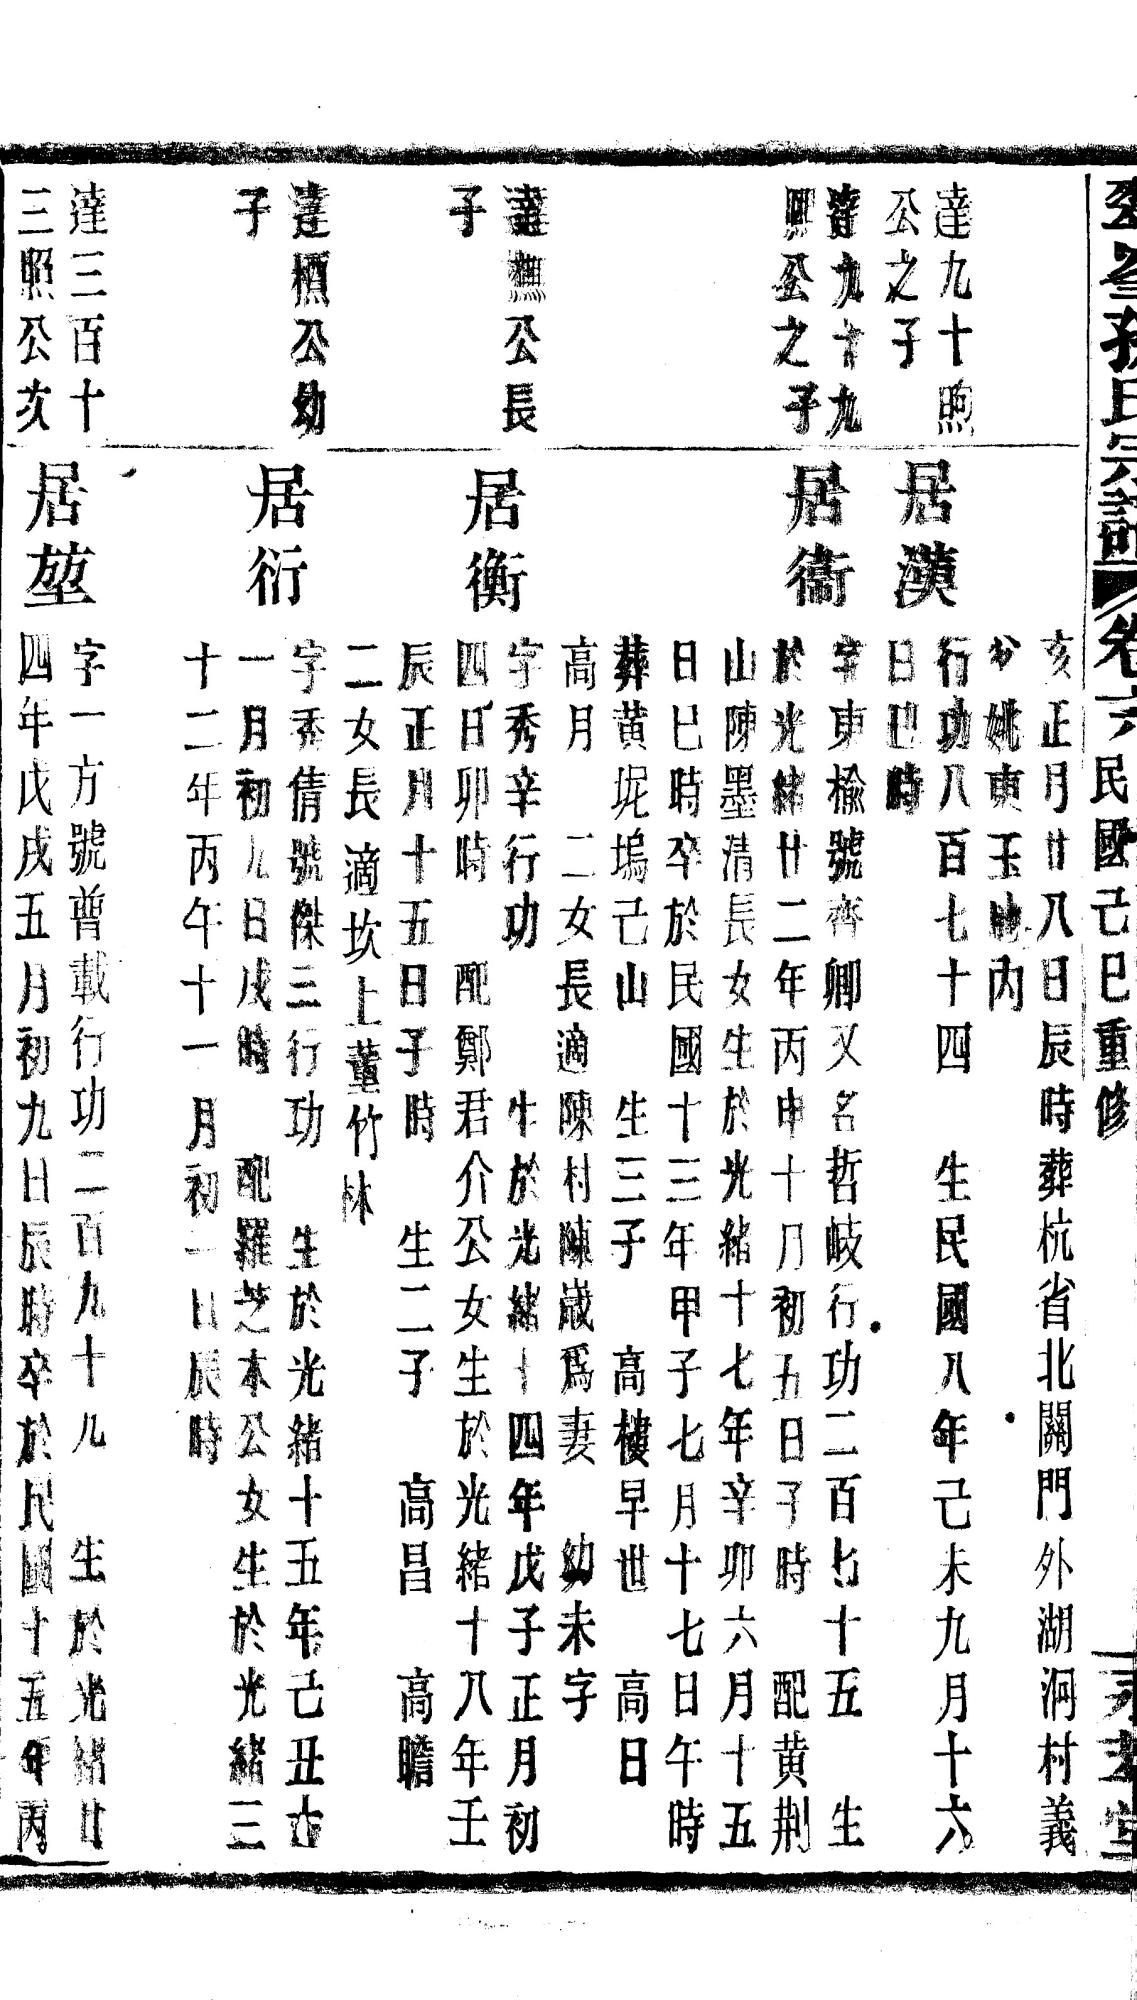 孫氏宗譜 卷六 民國己巳重修 堂
亥正月廿八日辰時葬杭省北關門外湖洞村義
姚東玉 內
達九十煦
公之子
居漢
行功八百七十四 生民國八年己未九月十六
日巳時
達九十九
照公之子
居衞
字東榆號齊卿又名哲岐行功二百七十五 生
於光緒廿二年丙申十月初五日子時 配黄荆
山陳墨清長女生於光緒十七年辛卯六月十五
日巳時卒於民國十三年甲子七月十七日午時
葬黄坭塢己山 生三子 高樓早世 高日
高月 二女長適陳村陳歲爲妻 幼未字
達樵公長
子
居衡
字秀辛行功 生於光緒十四年戊子正月初
四日卯時 配鄭君介公女生於光緒十八年壬
辰正月十五日子時 生二子 高昌 高瞻
二女長適坎上董竹林
達槱公幼
子
居衍
字秀倩號傑三行功 生於光緒十五年己丑十
一月初九日戌時 配羅芝本公女生於光緒三
十二年丙午十一月初一日辰時
達三百十
三照公次
居堃
字一方號普載行功二百九十九 生於光緒廿
四年戊戌五月初九日辰時卒於民國十五年丙